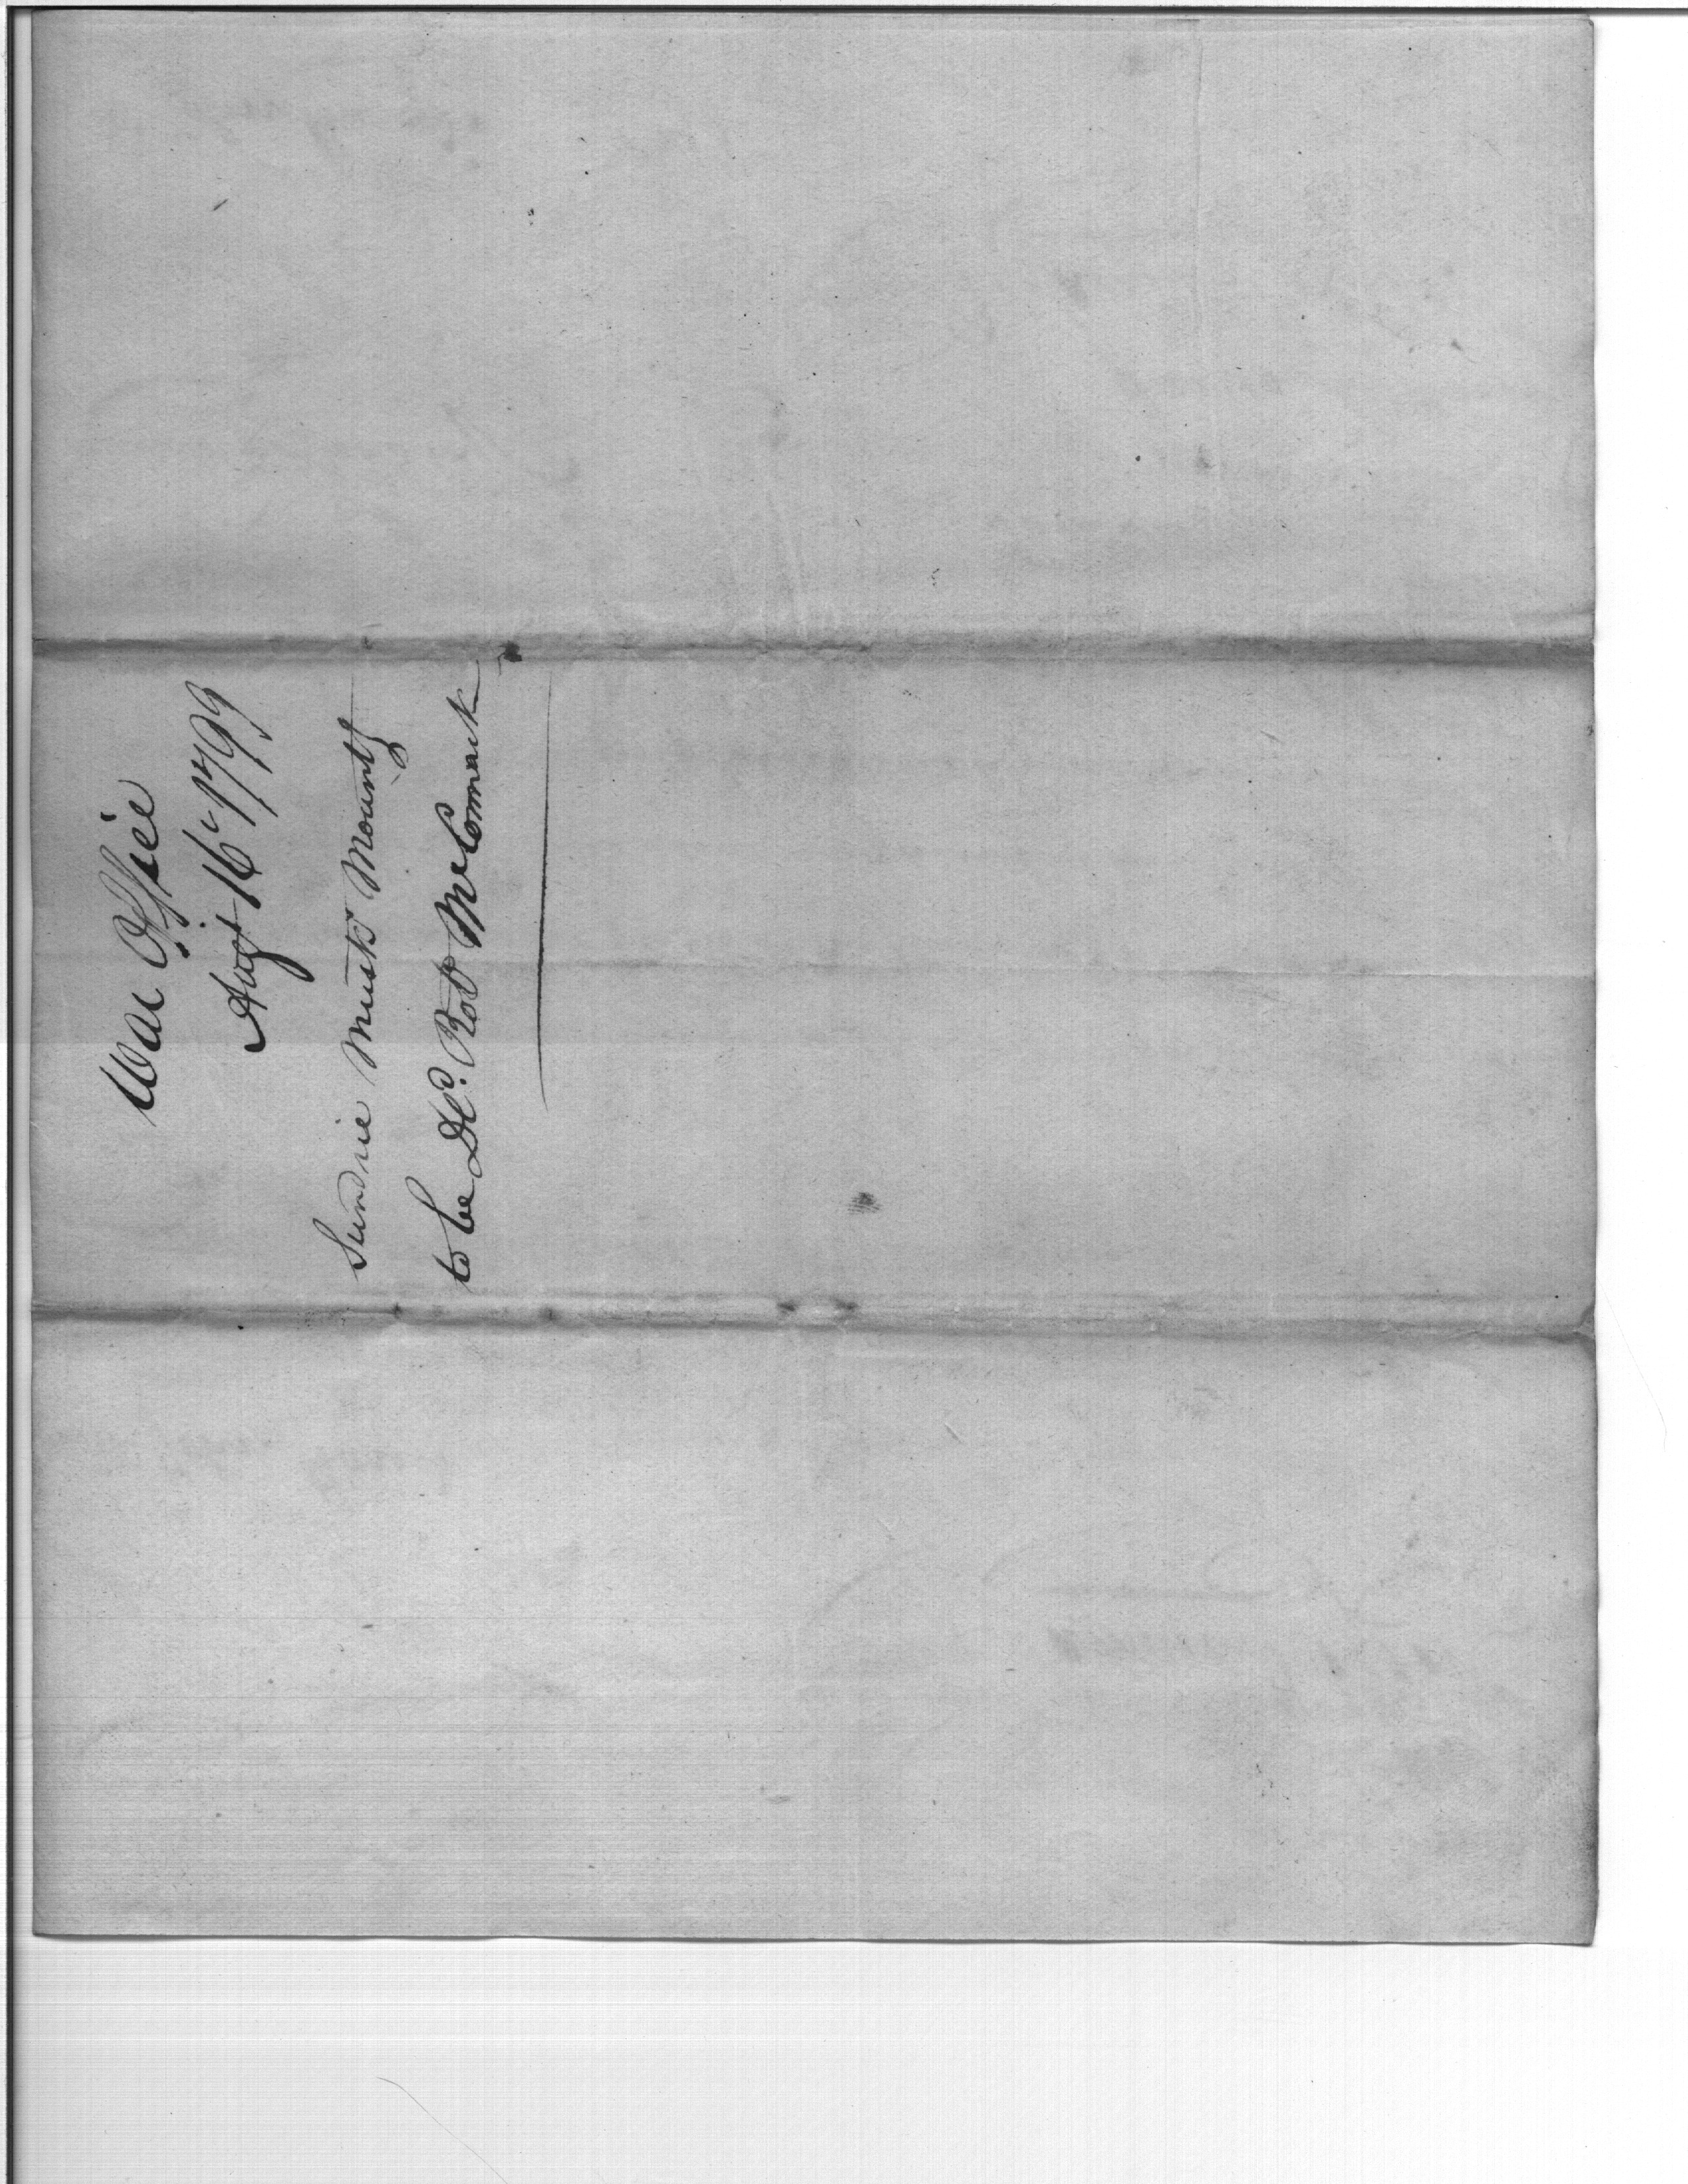 War Office
Augt 16 1799
Sundrie Muskt Mountg
to be Dd. Robt McCormack